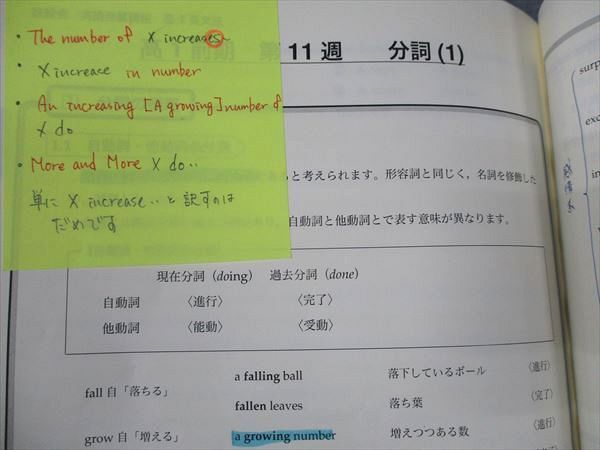 • The number of X increases~
• X increase in number
• An increasing [A growing] number of
X do
• More and More X do..
単に X increase .. と訳すのは
だめです
11 週 分詞 (1)
と考えられます。形容詞と同じく，名詞を修飾した
自動詞と他動詞とで表す意味が異なります。
現在分詞 (doing) 過去分詞 (done)
自動詞 〈進行〉 〈完了〉
他動詞 〈能動〉 〈受動〉
fall 自「落ちる」
a falling ball 落下しているボール 〈進行〉
fallen leaves 落ち葉 〈完了〉
grow 自「増える」 a growing number 増えつつある数 〈進行〉
surp
exc
in